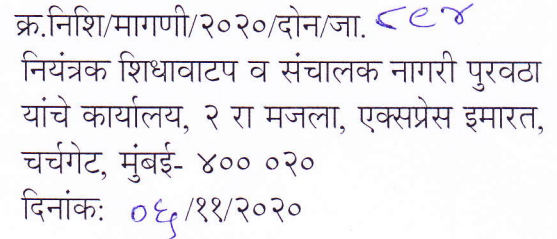 क्र.निशि/मागणी/२०२०/दोन/जा. ८९४
नियंत्रक शिधावाटप व संचालक नागरी पुरवठा
यांचे कार्यालय, २ रा मजला, एक्सप्रेस इमारत,
चर्चगेट, मुंबई- ४०० ०२०
दिनांक: ०६/११/२०२०